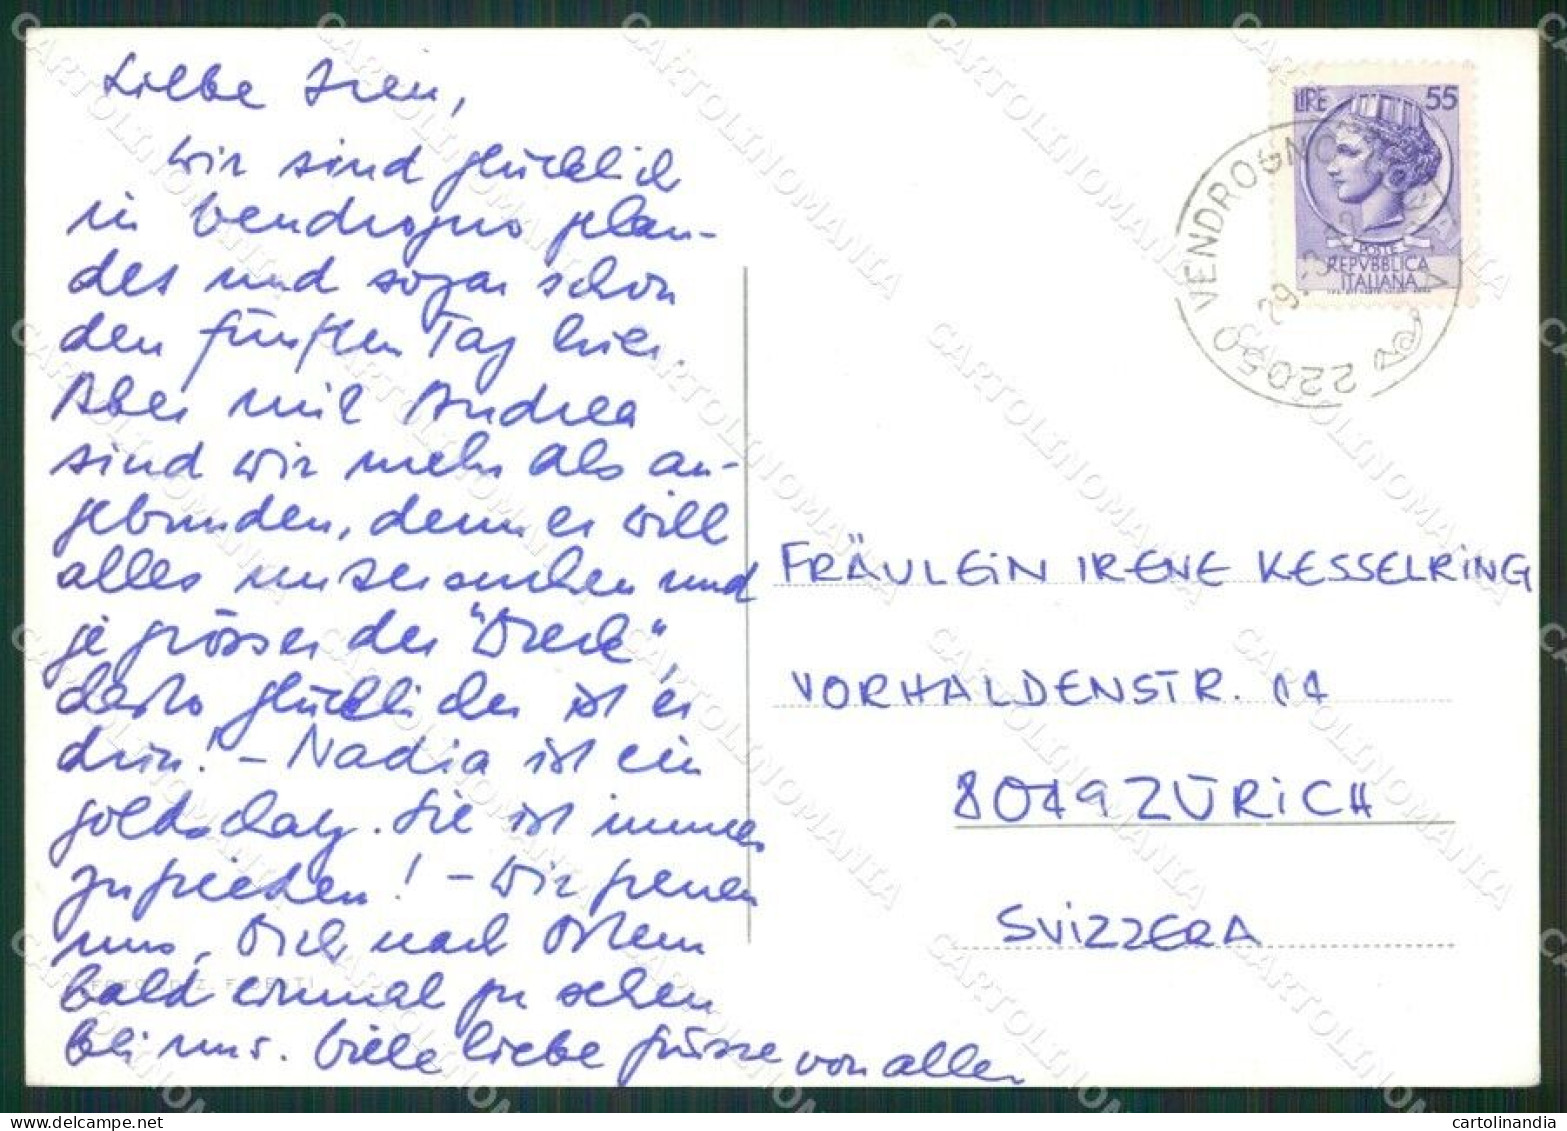 Liebe Iren,
Wir sind glücklich
in Vendrogno gelan-
det und sogar schon
den fünften Tag hier.
Aber mit Andrea
sind wir mehr als an-
gebunden, denn er will
alles untersuchen und
je grösser der "Dreck",
desto glücklicher ist er
drin! - Nadia ist ein
Goldschatz. Sie ist immer
zufrieden! - Wir freuen
uns, Dich nach Ostern
bald einmal zu sehen
bei uns. Viele liebe Grüsse von allen
LIRE 55
POSTE
REPVBBLICA
ITALIANA
22050 VENDROGNO
29.
FRÄULEIN IRENE KESSELRING
VORHALDENSTR. 14
8049 ZÜRICH
SVIZZERA
CARTOLINOMANIA
cartolinandia